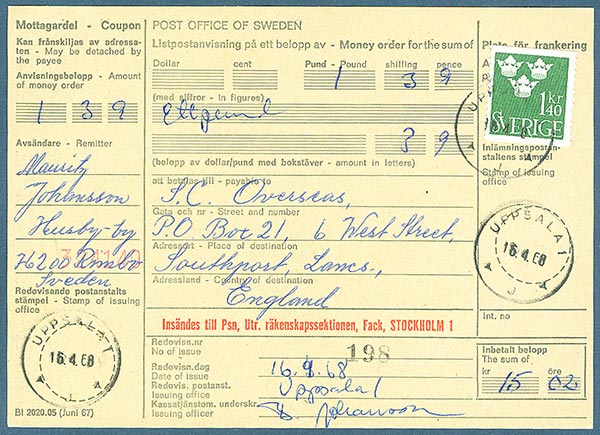 Mottagardel - Coupon
Kan frånskiljas av adressa-
ten - May be detached by
the payee
Anvisningsbelopp - Amount
of money order
1 3 9
Avsändare - Remitter
Mauritz
Johansson
Husby-by
76200 Rimbo
Sveden
Redovisande postanstalts
stämpel - Stamp of issuing
office
UPPSALA 1
16.4.68
BI 2020.05 (Juni 67)
POST OFFICE OF SWEDEN
Listpostanvisning på ett belopp av - Money order for the sum of
Dollar cent Pund - Pound shilling pence
1 3 9
(med siffror - in figures)
Ett pund
3 9
(belopp av dollar/pund med bokstäver - amount in letters)
att betalas till - payable to
S.C. Overseas,
Gata och nr - Street and number
P.O Box 21, 6 West Street,
Adressort - Place of destination
Southport, Lancs.,
Adressland - Country of destination
England
Insändes till Psn, Utr. räkenskapssektionen, Fack, STOCKHOLM 1
Redovisn.nr
No of issue
198
Redovisn.dag
Date of issue
16.4.68
Redovis. postanst.
Issuing office
Uppsala 1
Kassatjänstom. underskr.
Issuing officer
Johansson
Plats för frankering
1 kr
40
SVERIGE
UPPSALA
Inlämningspostan-
staltens stämpel
Stamp of issuing
office
UPPSALA 1
16.4.68
Int. no
Inbetalt belopp
The sum of
kr öre
15 02